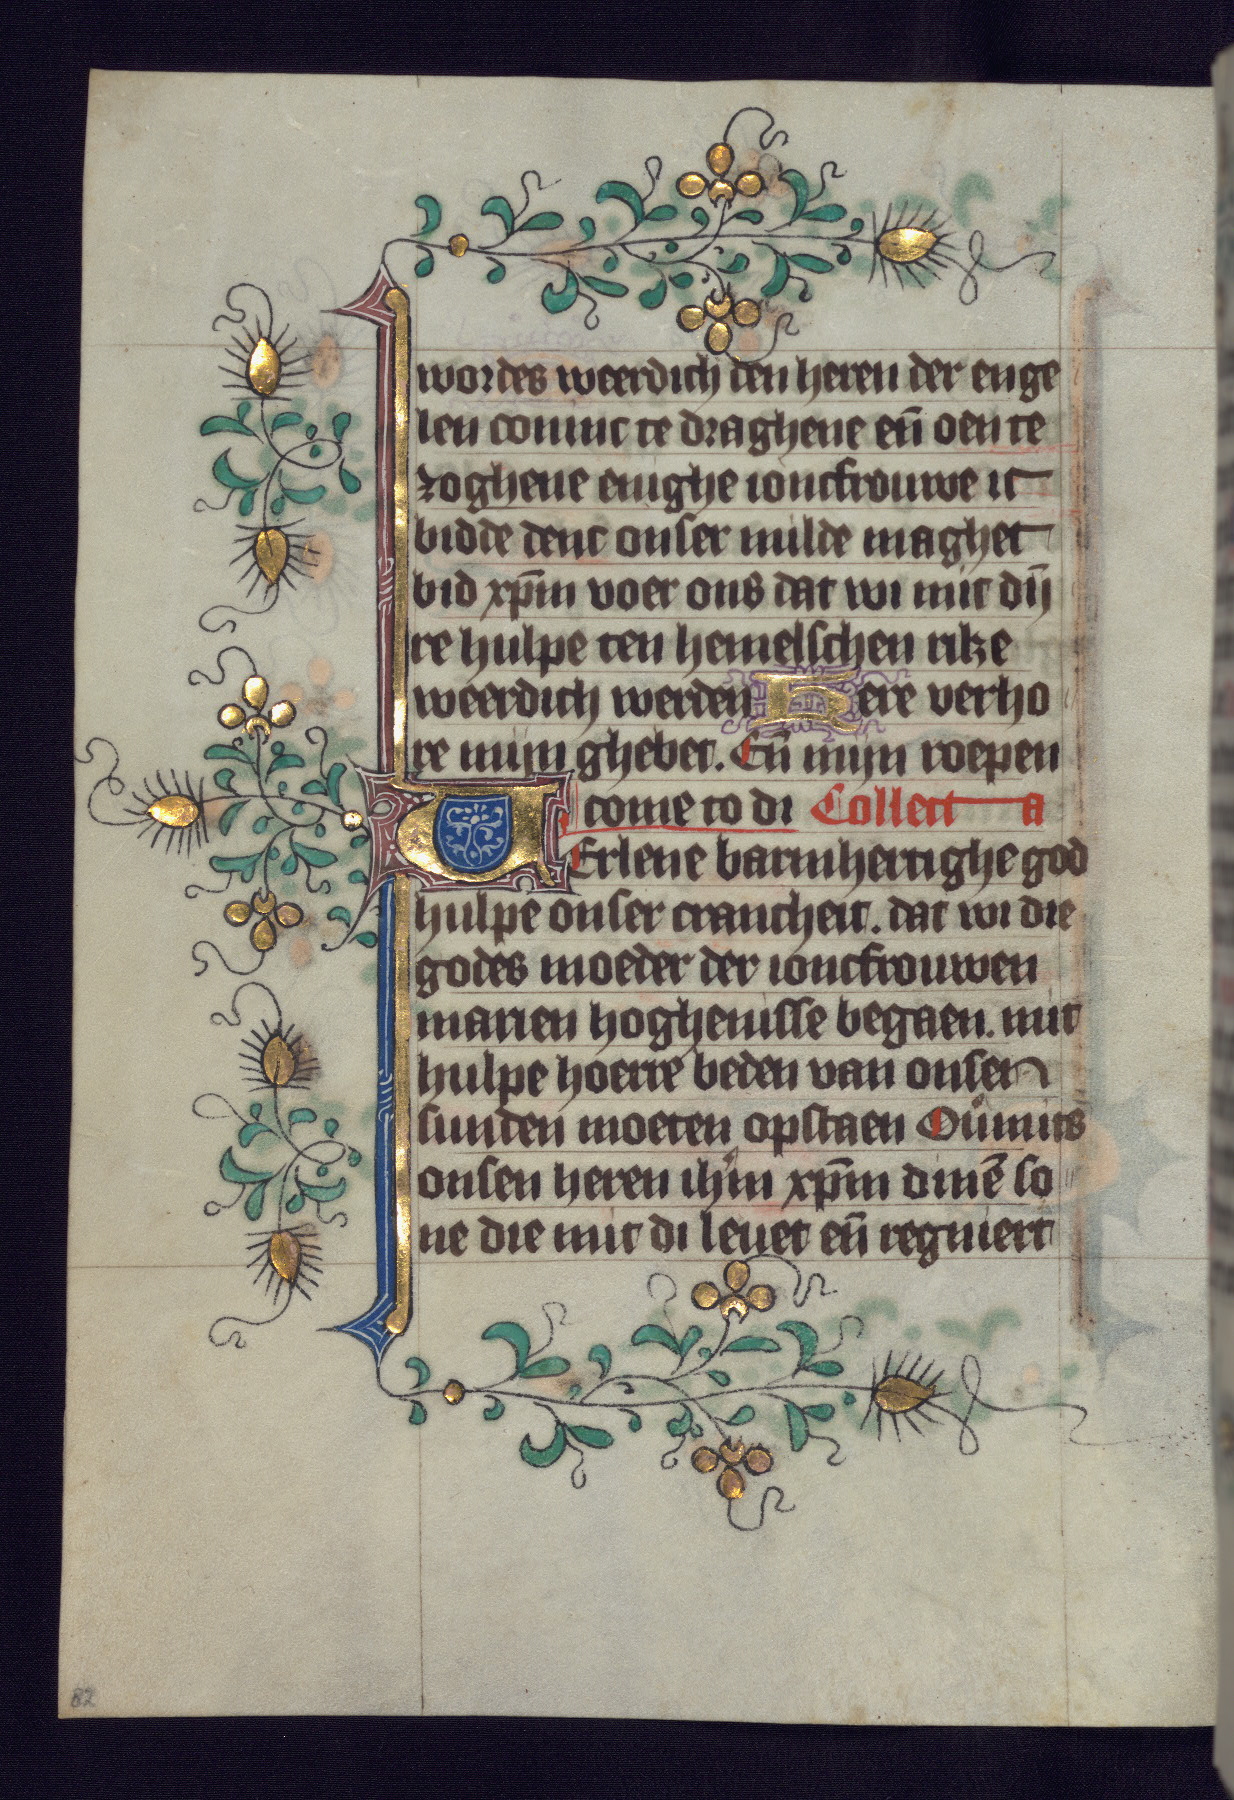 wordes weerdich den heren der enge
len coninc te draghene eñ oen te
zoghene enighe ioncfrouwe ic
bidde denc onser milde maghet
bid xp̄m voer ons dat wi mit dij̄
re hulpe ten hemelschen rike
weerdich werden Here verho
re mijn ghebet. Eñ mijn roepen
come to di Collecta
VErlene barmhertighe god
hulpe onser crancheit. dat wi die
godes moeder der ioncfrouwen
marien hoghenisse begaen. mit
hulpe hoerre beden van onsen
sunden moeten opstaen Ouͦmits
onsen heren ihͫm xp̄m dinē so
ne die mit di leuet eñ regniert
82